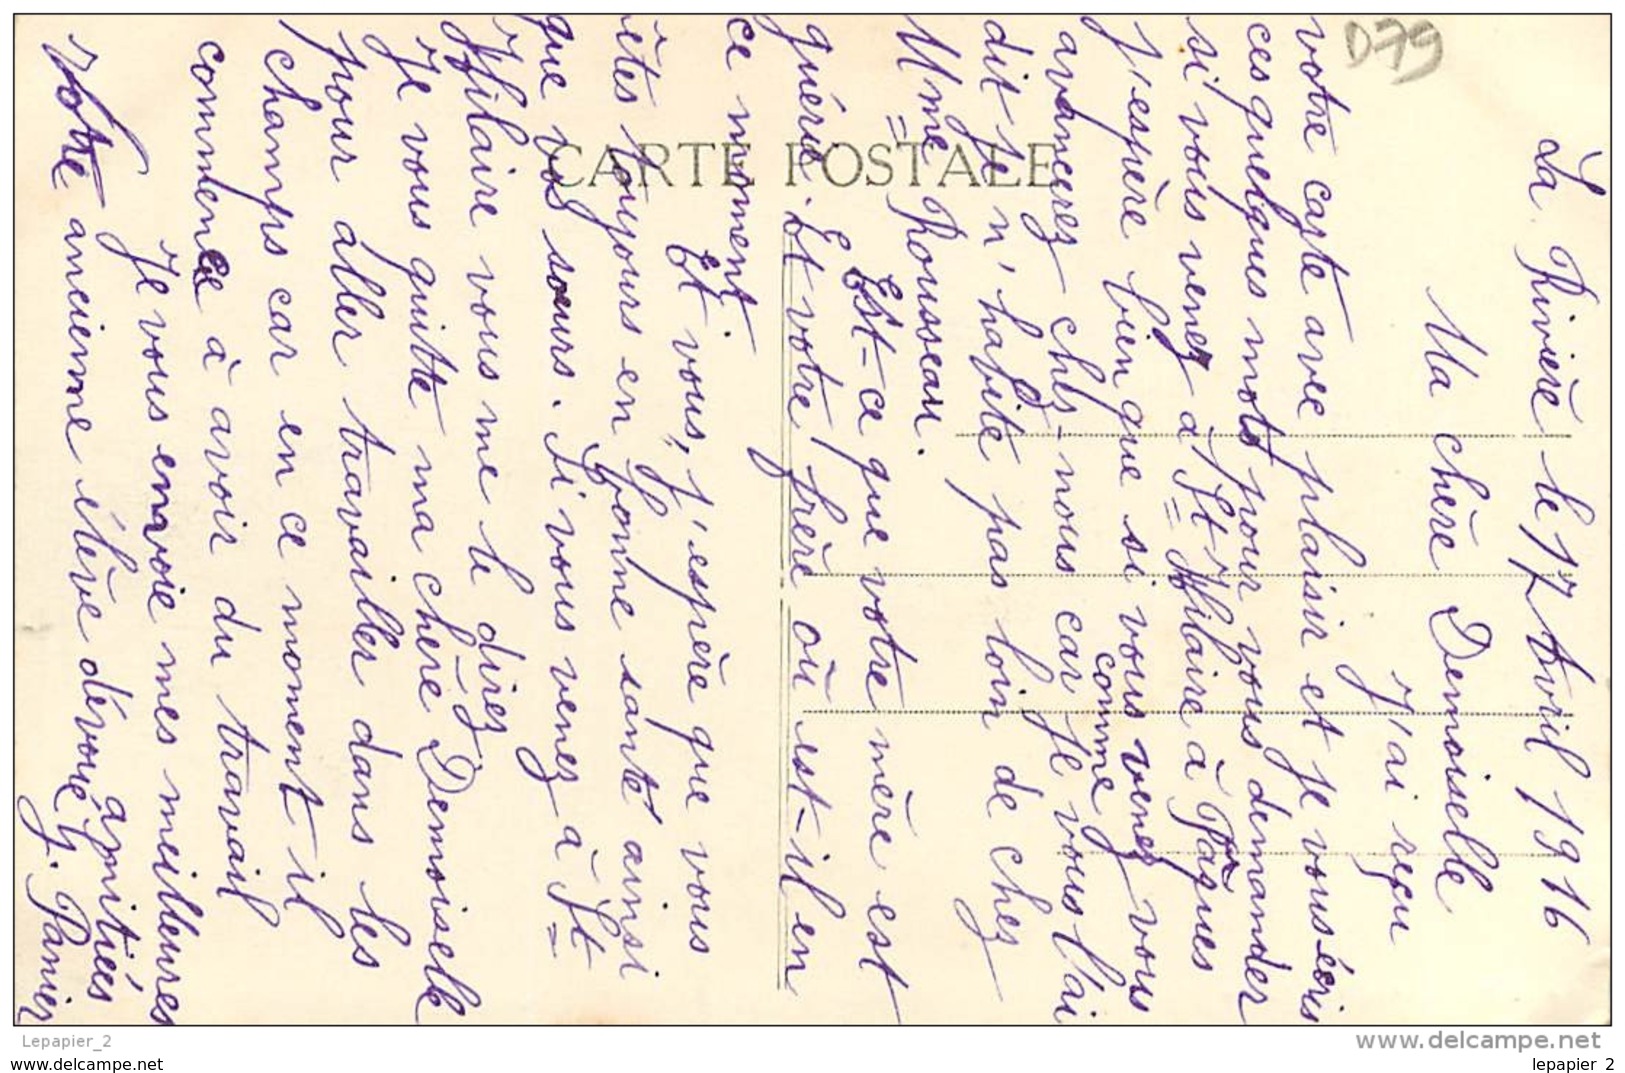 La Rivière le 17 Avril 1916
Ma chère Demoiselle
J'ai reçu
votre carte avec plaisir et je vous écris
ces quelques mots pour vous demander
si vous venez à St Hilaire à Pâques
j'espère bien que si vous venez vous
avancerez chez-nous car comme je vous l'ai
dit je n'habite pas loin de chez
Mme Rousseau.
Est-ce que votre mère est
guérie. Et votre frère où est-il en
ce moment.
Et vous, j'espère que vous
êtes toujours en bonne santé ainsi
que vos sœurs. Si vous venez à St
Hilaire vous me le direz.
Je vous quitte ma chère Demoiselle
pour aller travailler dans les
champs car en ce moment il
commence à avoir du travail
Je vous envoie mes meilleures
amitiées
Votre ancienne élève dévoué G. Panier
CARTE POSTALE
D79
Lepapier_2
www.delcampe.net
lepapier_2